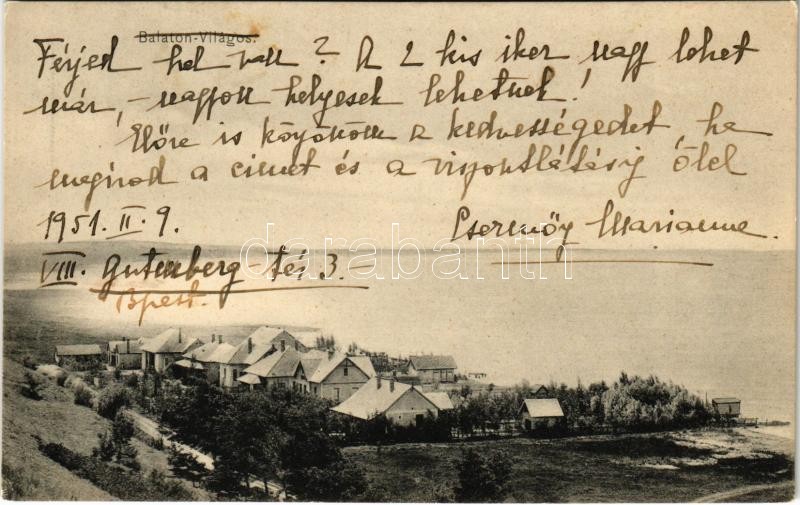 Balaton-Világos.
Férjed hol van? A 2 kis iker nagy lehet
már, - nagyon helyesek lehetnek!
Előre is köszönöm a kedvességedet, ha
megírod a címet és a viszontlátásig ölel
1951. II. 9. Csermőy Marianne.
VIII. Gutenberg-tér 3.
Bpest.
darabanth